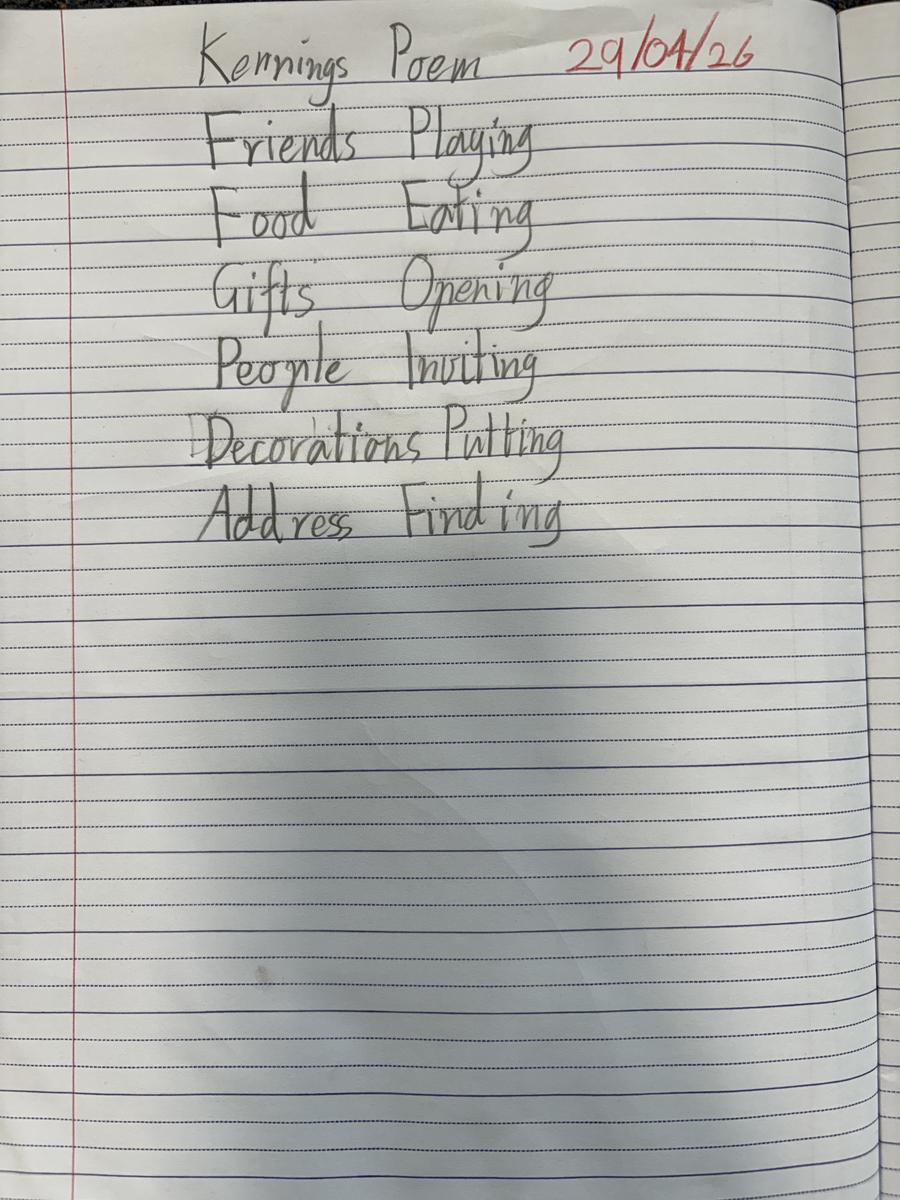 Kennings Poem 29/04/26
Friends Playing
Food Eating
Gifts Opening
People Inviting
Decorations Putting
Address Finding